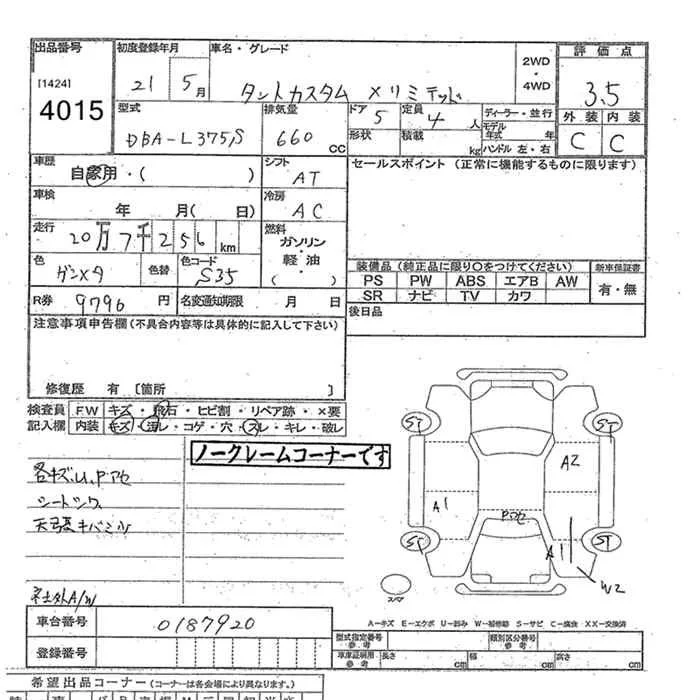 出品番号 初度登録年月 車名・グレード 評価点
[1424] 4015
21 5月 タントカスタム Xリミテッド 2WD・4WD 3.5
型式 排気量 ドア 定員 ディーラー・並行 外装 内装
DBA-L375S 660CC 5 4人 モデル年式 年 C C
形状 積載 kg ハンドル 左・右
車歴 シフト セールスポイント (正常に機能するものに限ります)
自家用・( ) AT
車検 冷房
年 月( 日) AC
走行 燃料
20万7千256km ガソリン・軽油( )
色 色替 色コード 装備品 (純正品に限り〇をつけてください) 新車保証書
ガンメタ S35 PS PW ABS エアB AW 有・無
SR ナビ TV カワ
R券 9796円 名変通知期限 月 日 後日品
注意事項申告欄(不具合内容等は具体的に記入して下さい)
修復歴 有 [箇所 ]
検査員 F.W キズ・飛石・ヒビ割・リペア跡・×要
記入欄 内装 キズ・汚レ・コゲ・穴・スレ・キレ・破レ
ノークレームコーナーです
各キズ.U.Pアセ
シートシワ
社外A/W
ST ST
A2
A1 Pアセ
A1 ST
W2
スペア
A-キズ E-エクボ U-凹み W-補修跡 S-サビ C-腐食 XX-交換済
車台番号 0187920
登録番号
型式指定番号 参考 類別区分番号 参考
車庫証明用 参考 長さ cm 幅 cm 高さ cm
希望出品コーナー (コーナーは各会場により異なります。)